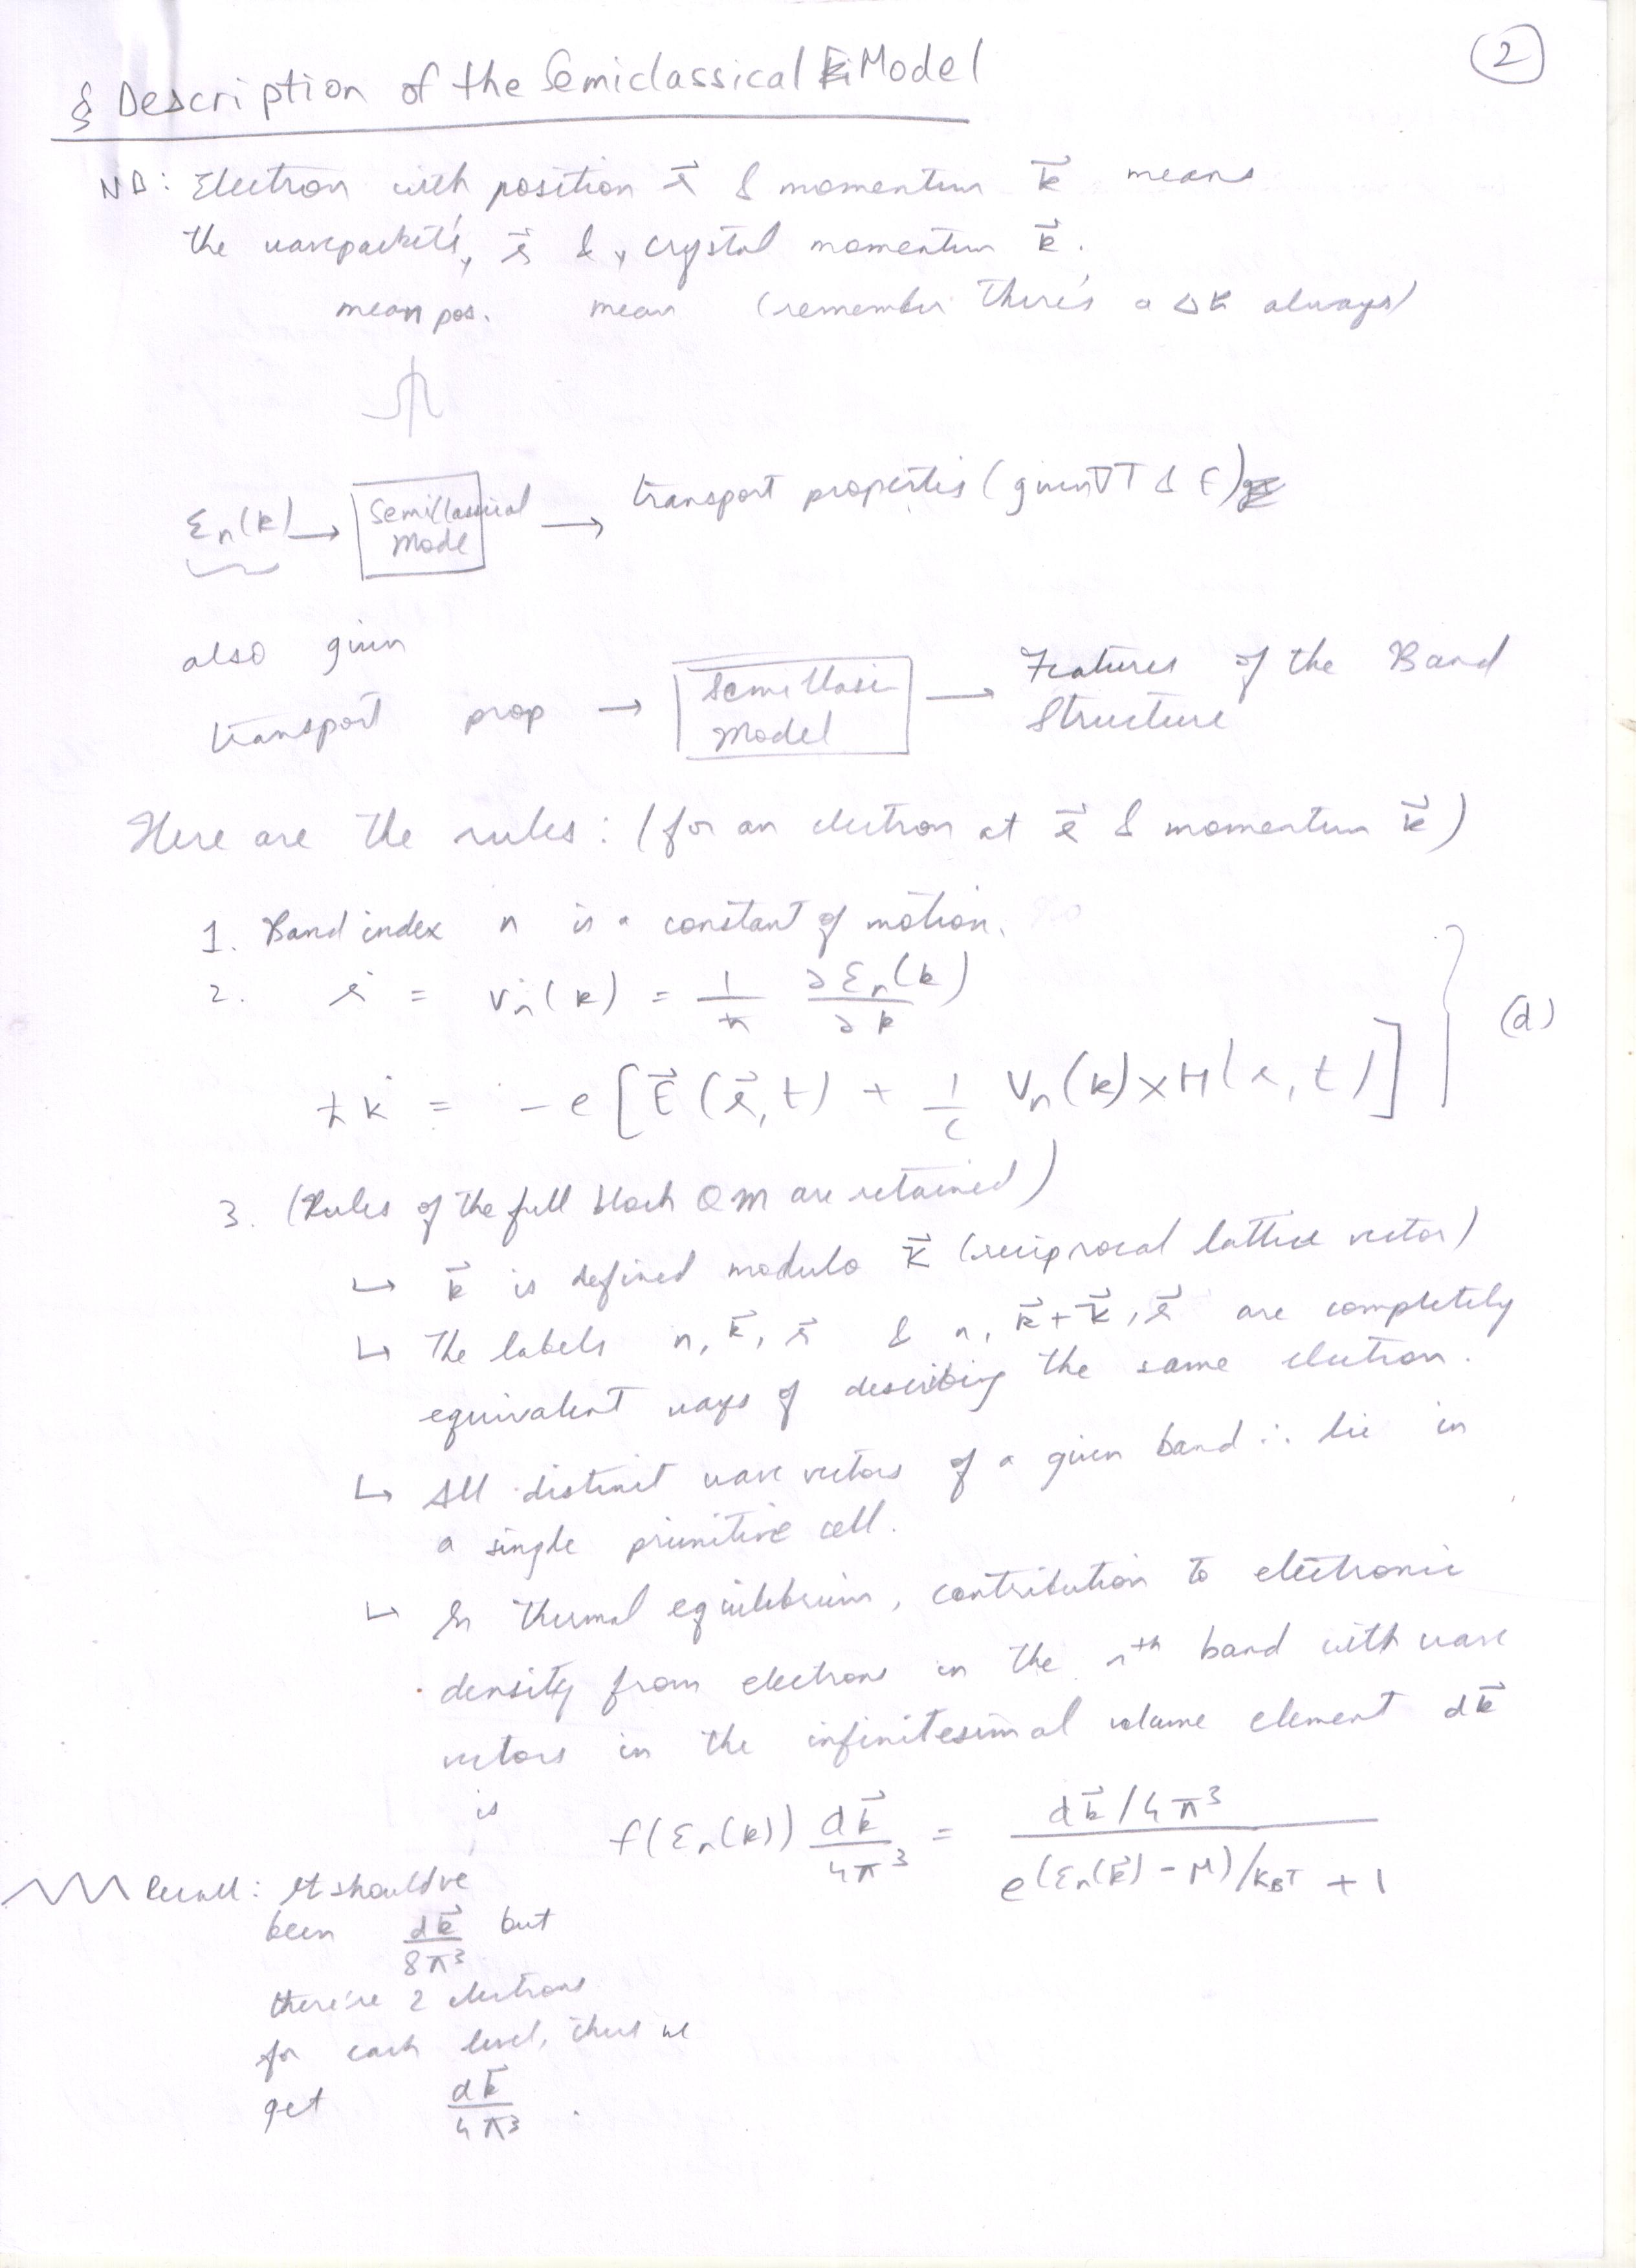 2
§ Description of the Semiclassical Model
NB: Electron with position r⃗ & momentum k⃗ means
the wavepacket's, r⃗ & crystal momentum k⃗.
mean pos. mean (remember there's a Δk always)
ε_n(k) → Semiclassical Model → transport properties (given ∇T & E)
also given
transport prop → Semiclassi Model → Features of the Band Structure
Here are the rules: (for an electron at r⃗ & momentum k⃗)
1. Band index n is a constant of motion.
2. ṙ = v_n(k) = 1/ħ ∂ε_n(k)/∂k
ħk̇ = -e [E⃗(r⃗,t) + 1/c v_n(k) × H(r,t)] } (d)
3. (Rules of the full bloch QM are retained)
↳ k⃗ is defined modulo K⃗ (reciprocal lattice vector)
↳ The labels n, k⃗, r⃗ & n, k⃗+K⃗, r⃗ are completely
equivalent ways of describing the same electron.
↳ All distinct wave vectors of a given band ∴ lie in
a single primitive cell.
↳ In thermal equilibrium, contribution to electronic
density from electrons in the n^th band with wave
vectors in the infinitesimal volume element dk⃗
is
f(ε_n(k)) dk⃗/4π³ = (dk⃗/4π³)/(e^(ε_n(k⃗)-μ)/k_BT + 1)
Recall: it should've
been dk⃗/8π³ but
there're 2 electrons
for each level, thus we
get dk⃗/4π³ .